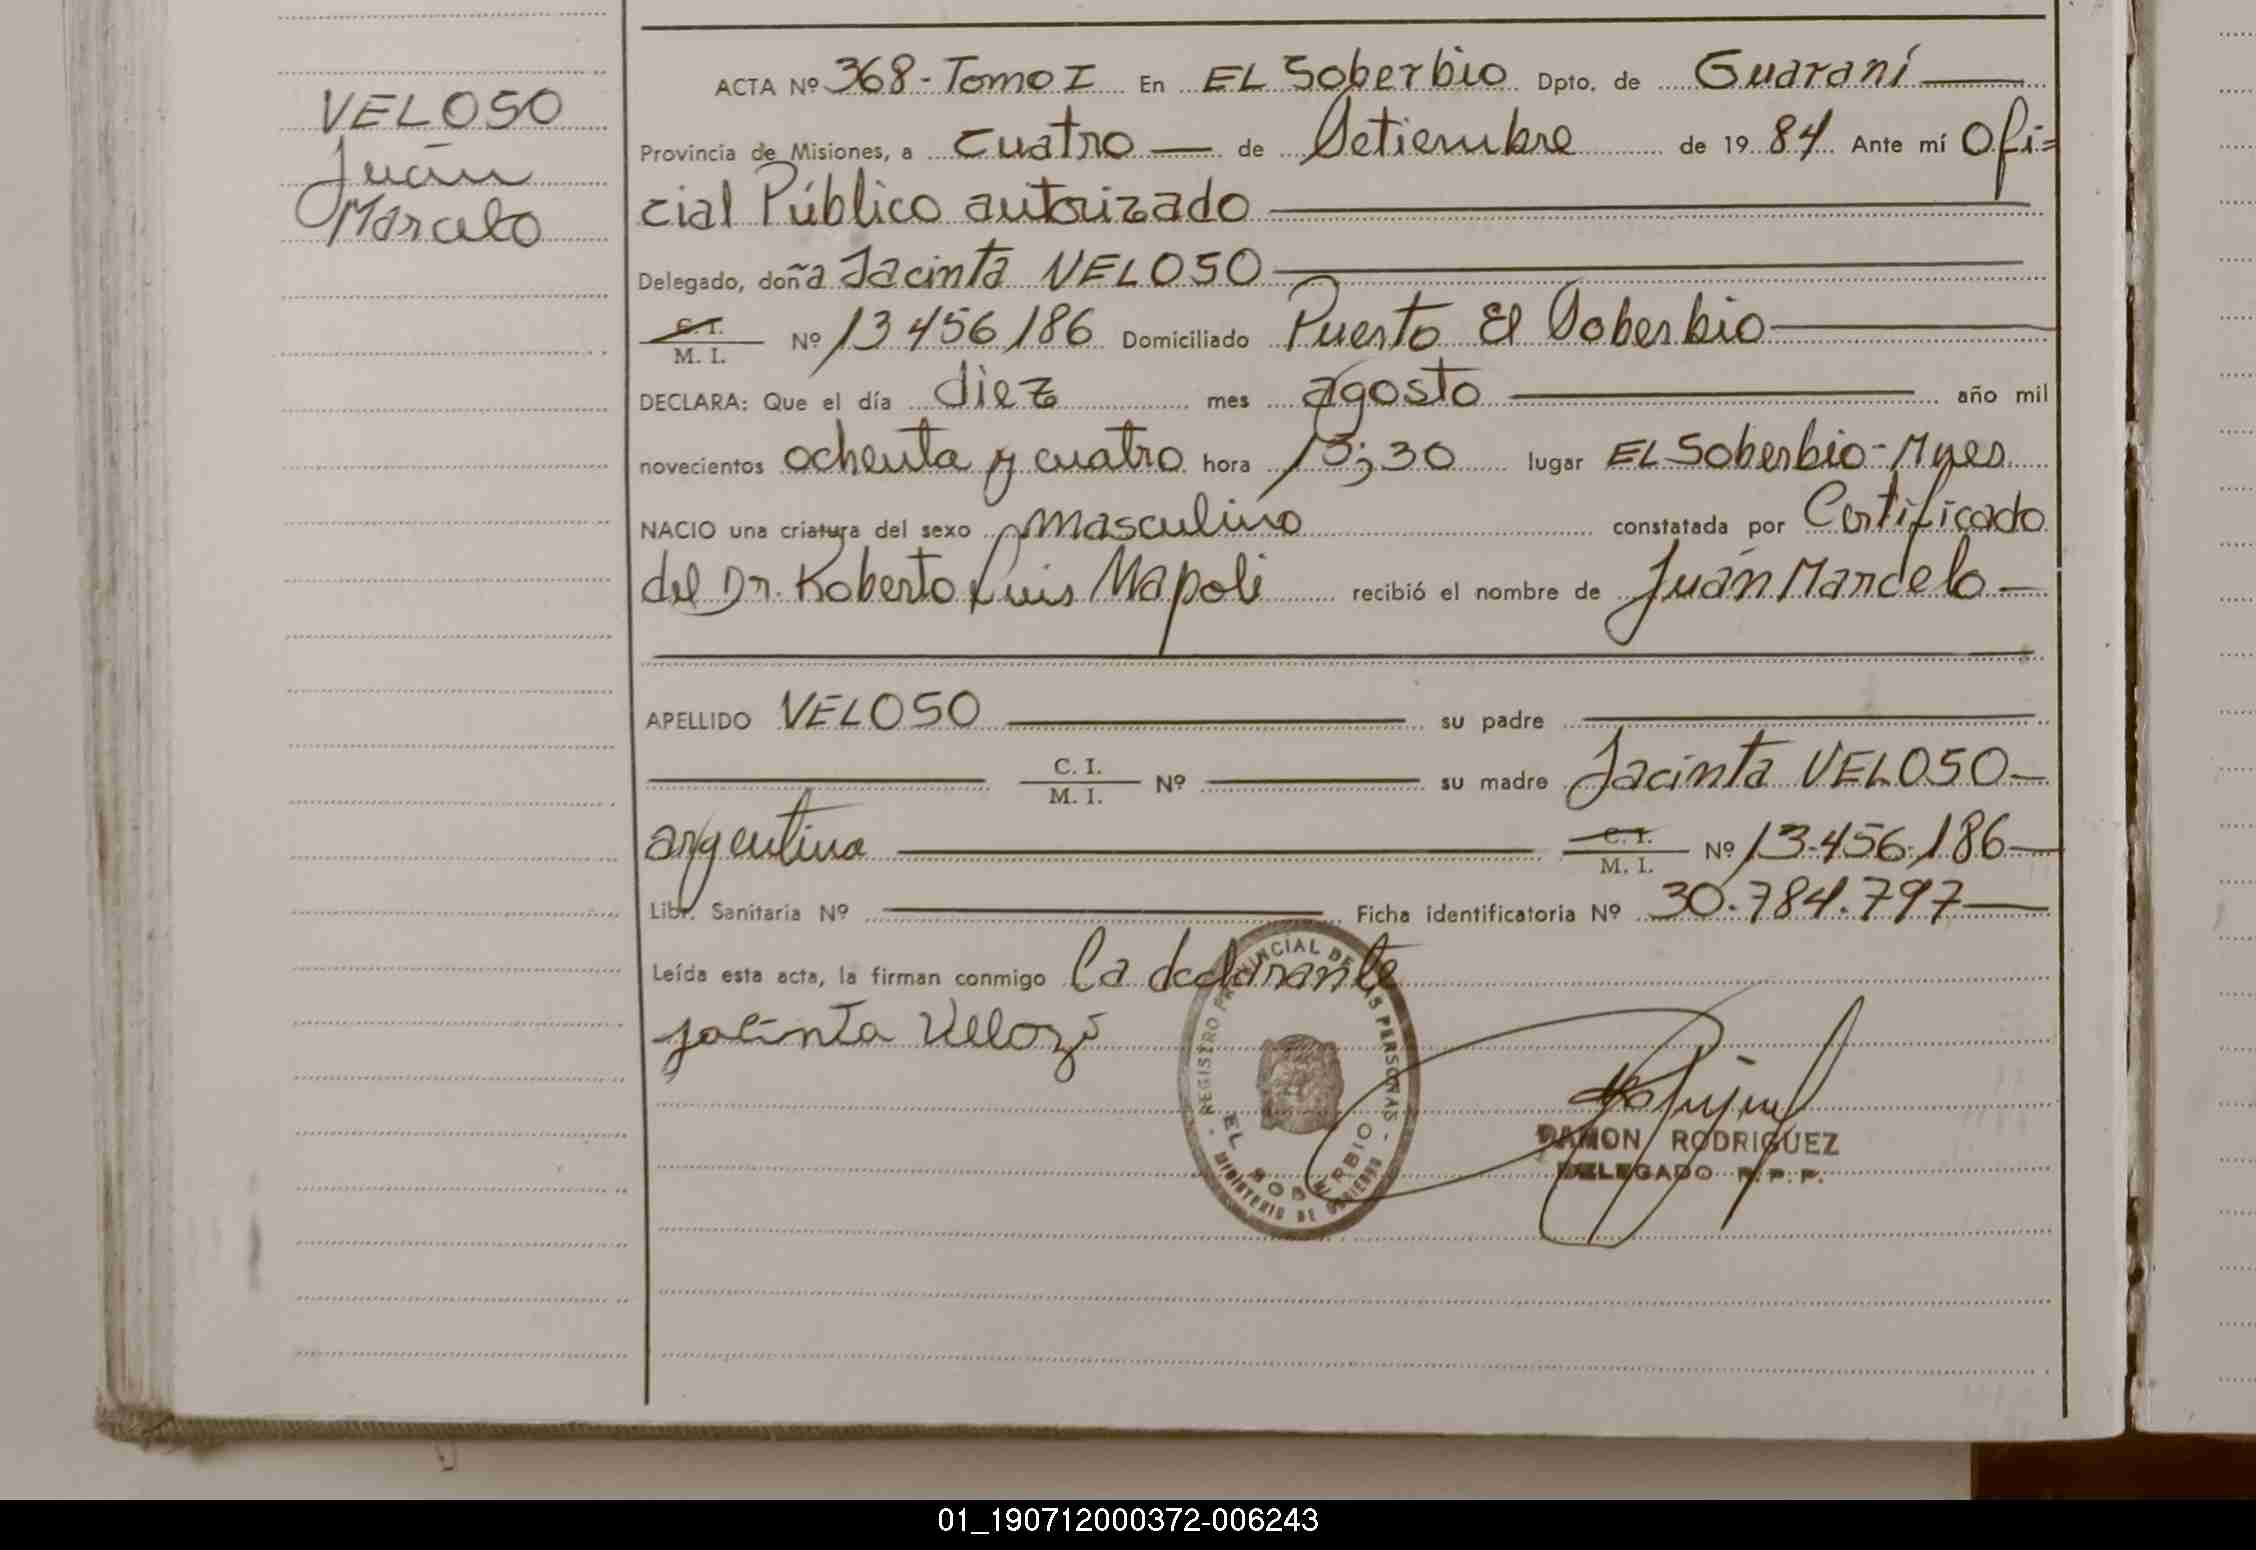 VELOSO
Juan
Marcelo
ACTA Nº 368-Tomo I En EL Soberbio Dpto. de Guaraní
Provincia de Misiones, a cuatro de Setiembre de 1984 Ante mí Ofi=
cial Público autorizado
Delegado, doña Jacinta VELOSO
C. I.
M. I. Nº 13456186 Domiciliado Puerto El Soberbio
DECLARA: Que el día diez mes agosto año mil
novecientos ochenta y cuatro hora 13;30 lugar EL Soberbio-Mnes
NACIO una criatura del sexo masculino constatada por Certificado
del Dr. Roberto Luis Napoli recibió el nombre de Juan Marcelo
APELLIDO VELOSO su padre
C. I.
M. I. Nº su madre Jacinta VELOSO
argentina C. I.
M. I. Nº 13.456.186
Libr. Sanitaria Nº Ficha identificatoria Nº 30.784.797
Leída esta acta, la firman conmigo la declarante
jacinta
REGISTRO PROVINCIAL DE LAS PERSONAS
EL SOBERBIO
MINISTERIO DE GOBIERNO
RAMON RODRIGUEZ
DELEGADO R.P.P.
01_190712000372-006243